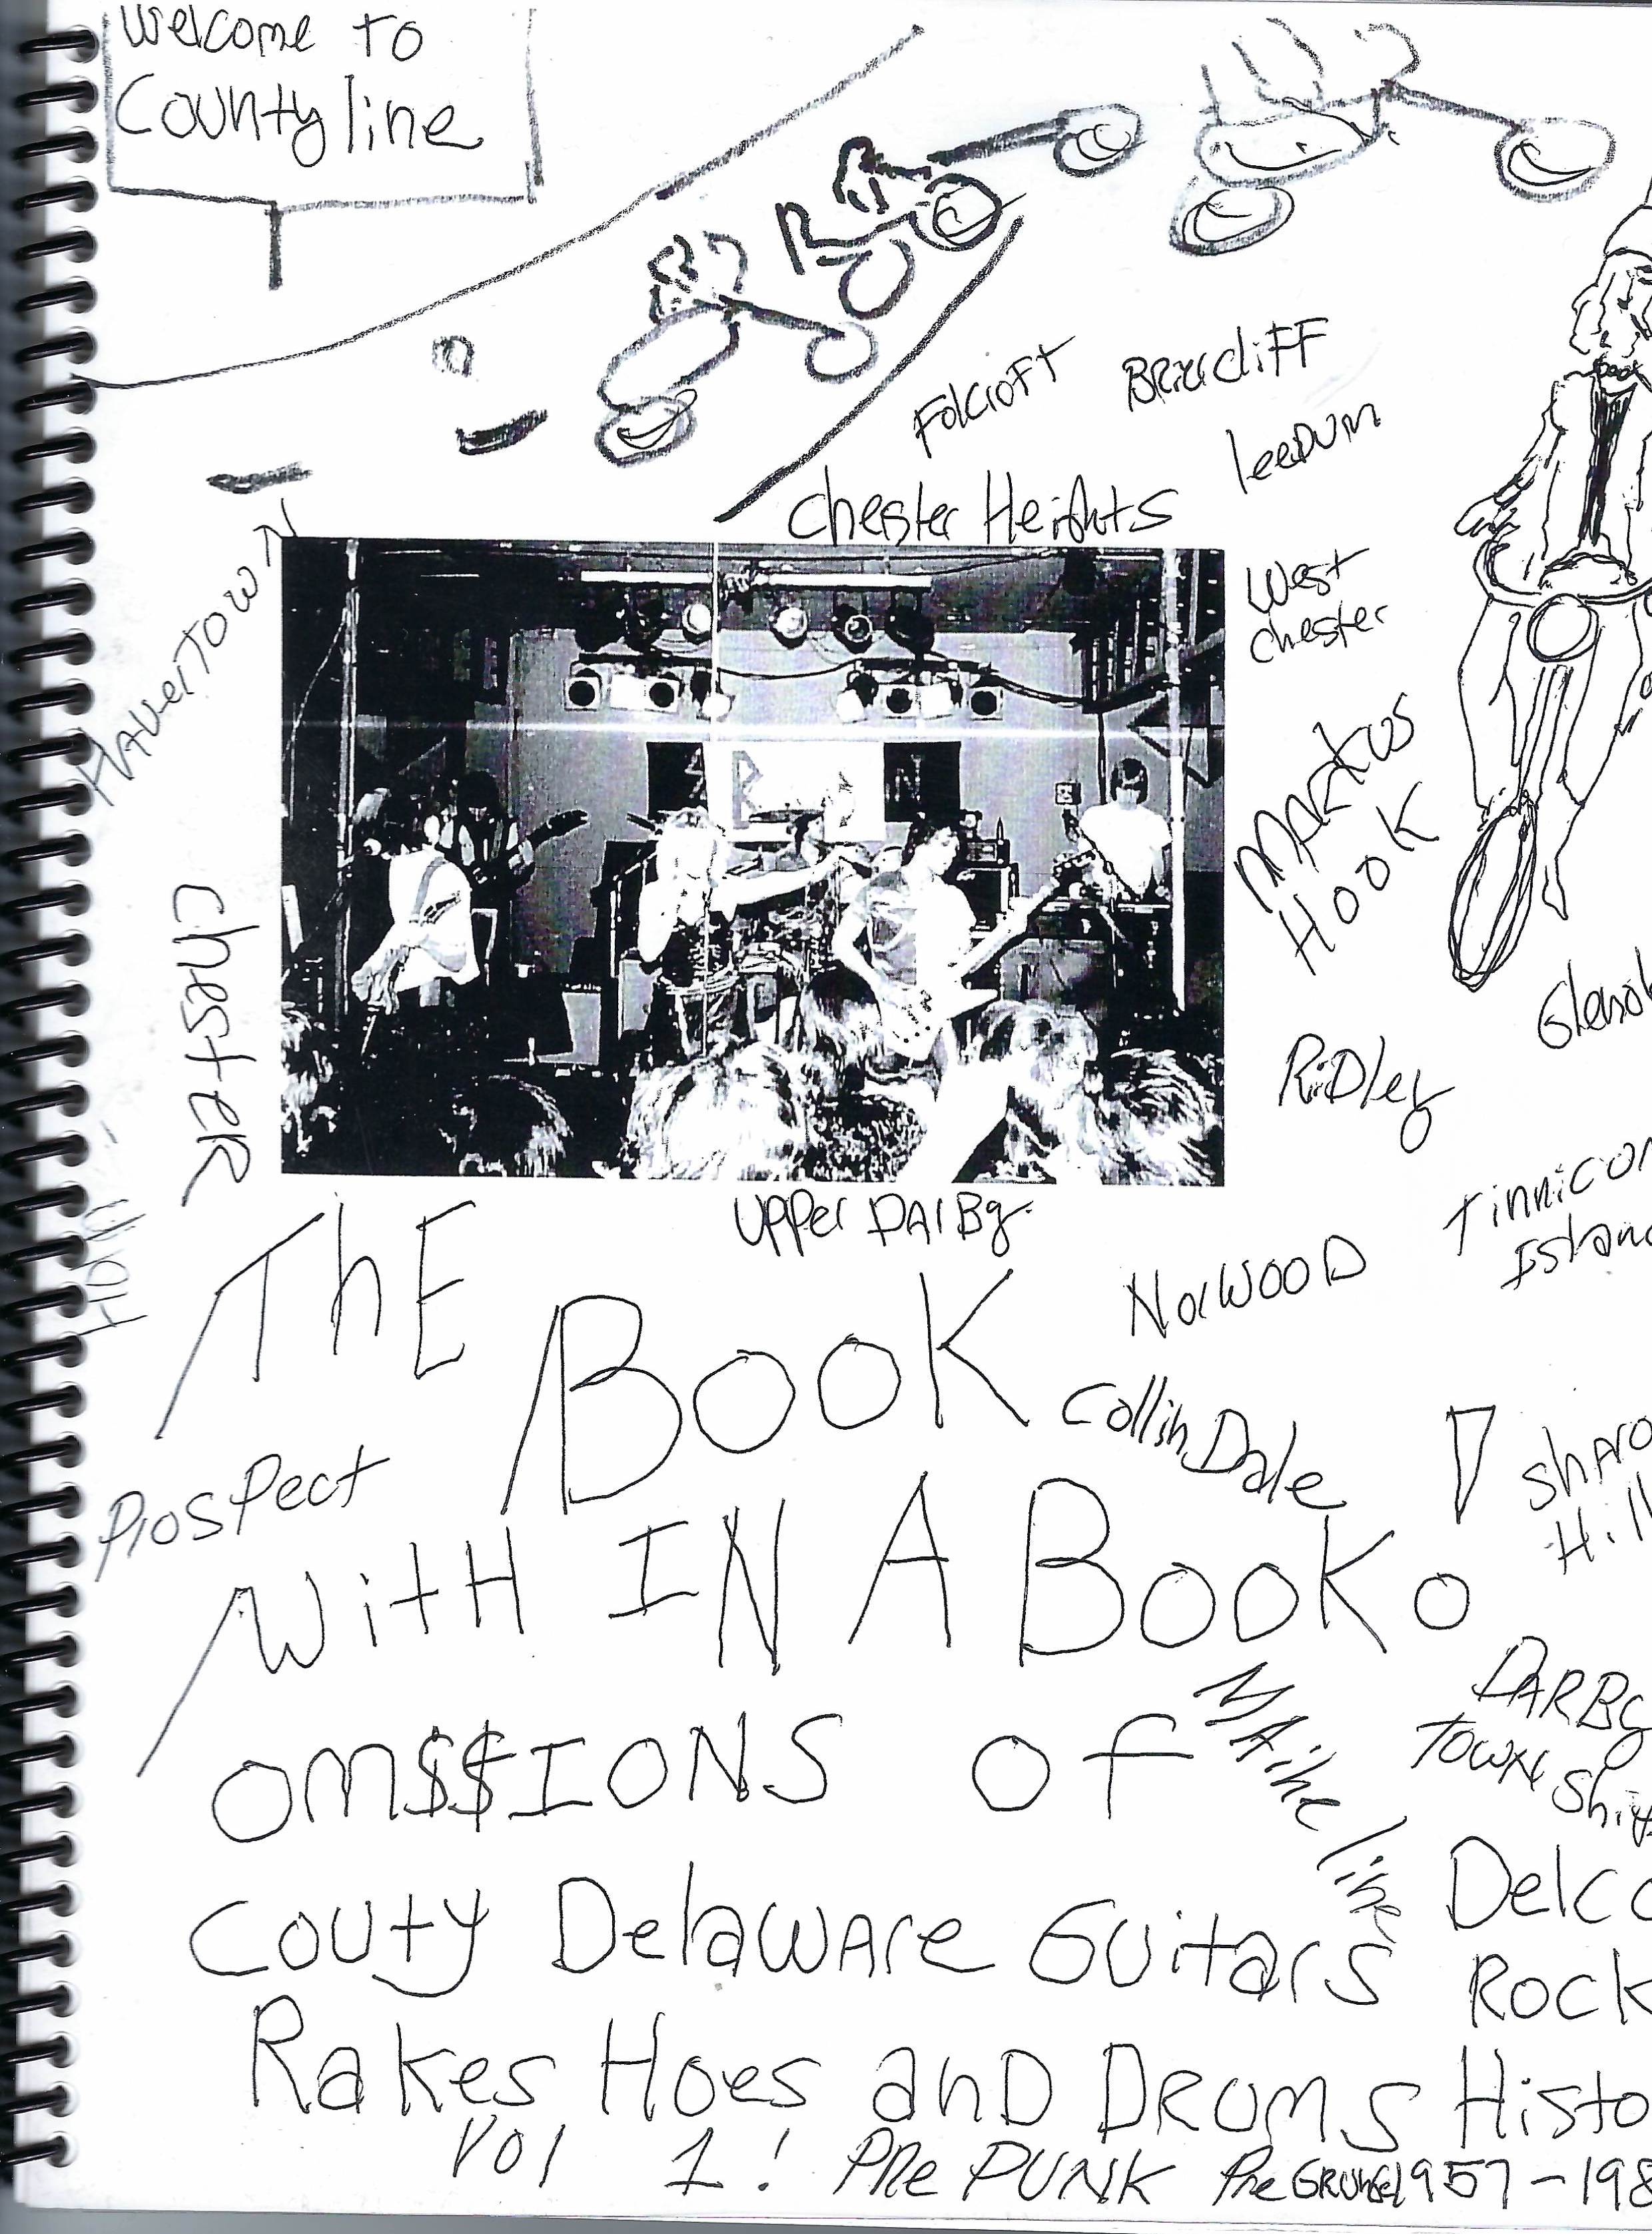 Welcome to
County line
Folcroft
Briarcliff
leeDum
Chester Heights
HAverTOWN
West
Chester
MARKUS
HOOK
Chester
RiDley
Glenol
Upper DARBy.
Tinnicon
Island
NorWOOD
ThE
BOOK
CollinDale
Sharo
Hill
ProsPect
With IN A BOOK
DARBy
TOWNShip
MAine line
OM$$IONS Of
Delco
Couty Delaware Guitars
Rock
Rakes Hoes and DRUMS
Histo
Vol 1! PRe PUNK Pre GRUNGE 1957-198